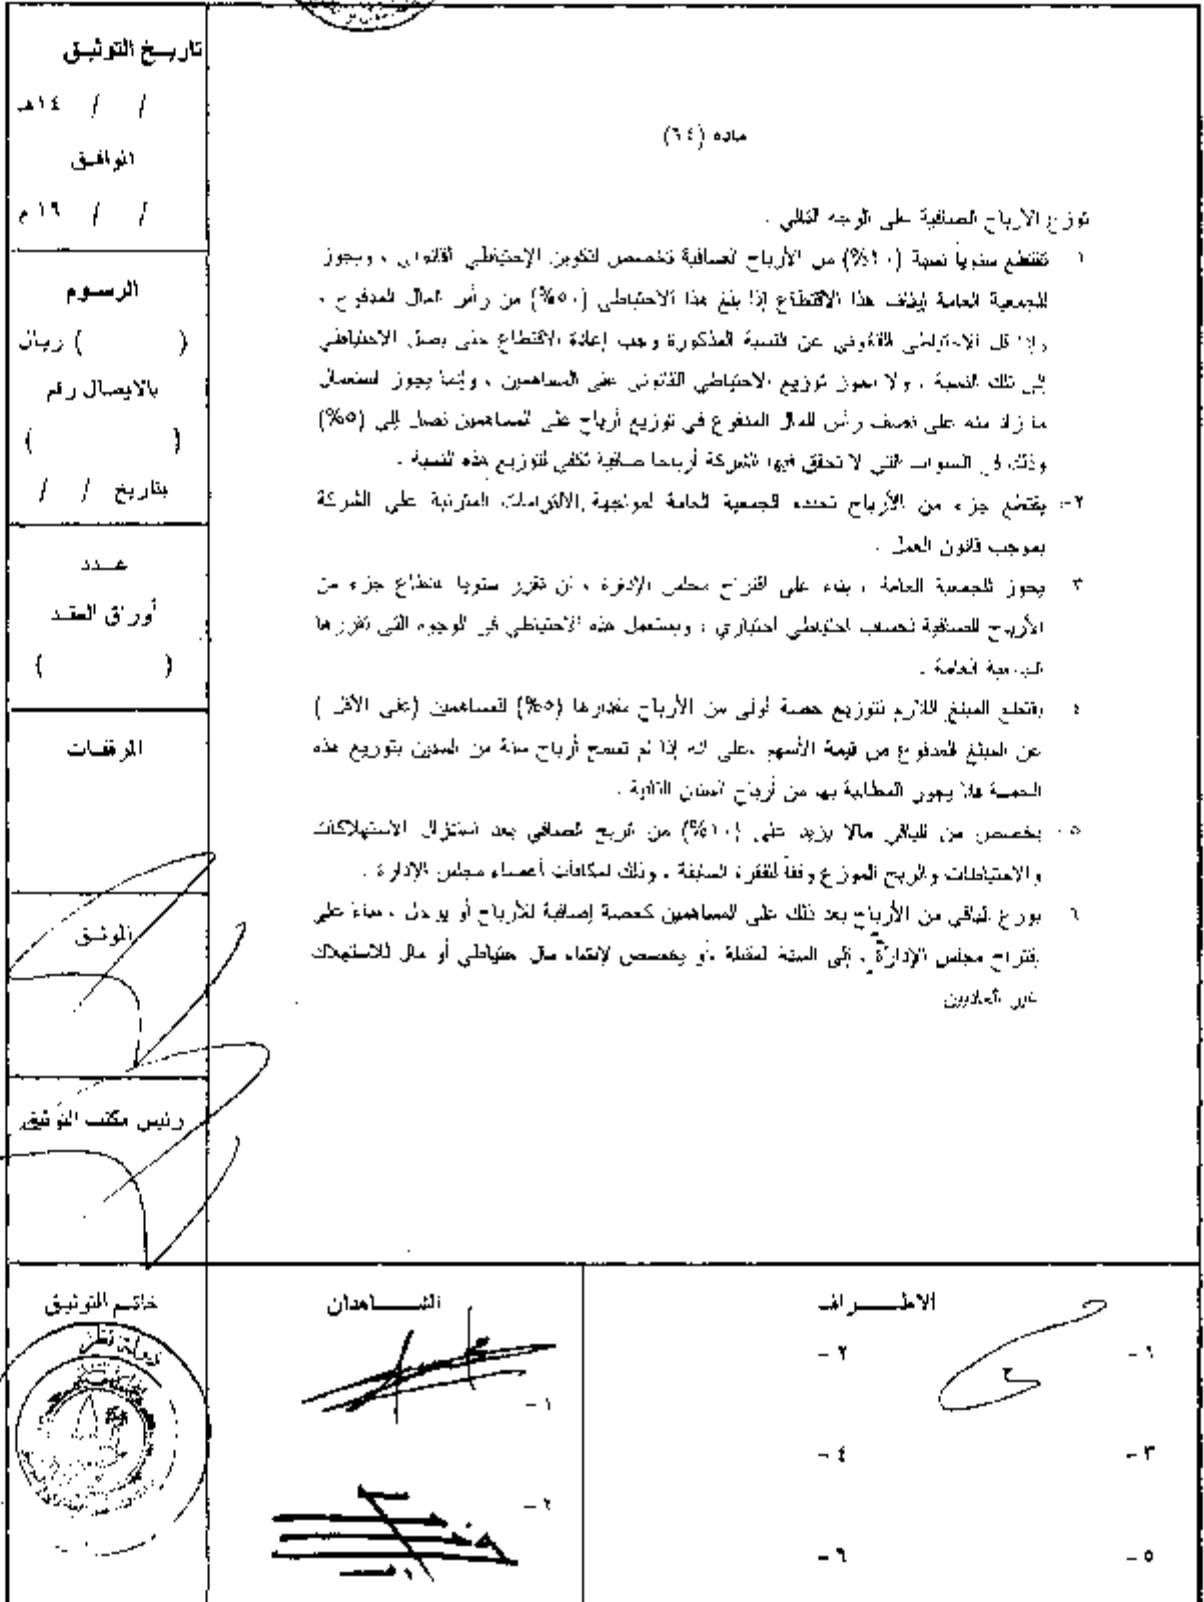 ماده (٦٤)
توزع الأرباح الصافية على الوجه التالي .
١ تقتطع سنوياً نسبة (١٠%) من الأرباح الصافية تخصص لتكوين الإحتياطي القانوني ، ويجوز
للجمعية العامة إيقاف هذا الاقتطاع إذا بلغ هذا الاحتياطي (٥٠%) من رأس المال المدفوع .
وإذا قل الاحتياطي القانوني عن النسبة المذكورة وجب إعادة الاقتطاع حتى يصل الاحتياطي
إلى تلك النسبة . ولا يجوز توزيع الاحتياطي القانوني على المساهمين ، وإنما يجوز استعمال
ما زاد منه على نصف رأس المال المدفوع في توزيع أرباح على المساهمين تصل إلى (٥%)
وذلك في السنوات التي لا تحقق فيها الشركة أرباحا صافية تكفي لتوزيع هذه النسبة .
٢- يقتطع جزء من الأرباح تحدده الجمعية العامة لمواجهة الالتزامات المترتبة على الشركة
بموجب قانون العمل .
٣ يجوز للجمعية العامة ، بناء على اقتراح مجلس الإدارة ، ان تقرر سنويا اقتطاع جزء من
الأرباح الصافية لحساب احتياطي اختياري ، ويستعمل هذه الاحتياطي في الوجوه التي تقررها
الجمعية العامة .
٤ يقتطع المبلغ اللازم لتوزيع حصة أولى من الأرباح مقدارها (٥%) للمساهمين (على الأقل )
عن المبلغ المدفوع من قيمة الأسهم ،على انه إذا لم تسمح أرباح سنة من السنين بتوزيع هذه
الحصة فلا يجوز المطالبة بها من أرباح السنين التالية .
٥- يخصص من الباقي مالا يزيد على (١٠%) من الربح الصافي بعد استنزال الاستهلاكات
والاحتياطات والربح الموزع وفقاً للفقرة السابقة ، وذلك لمكافات أعضاء مجلس الإدارة .
٦ يوزع الباقي من الأرباح بعد ذلك على المساهمين كحصة إضافية للأرباح أو يرحل ، بناء على
إقتراح مجلس الإدارة ، إلى السنة المقبلة ،أو يخصص لإنشاء مال احتياطي أو مال للاستهلاك
غير العاديين
تاريـخ التوثيـق
/ / ١٤هـ
الموافـق
/ / ١٩ م
الرسـوم
( ) ريال
بالايصال رقم
( )
بتاريخ / /
عـدد
أوراق العقـد
( )
المرفقـات
الموثـق
رئيس مكتب التوثيق
الاطـــراف
١ -
٢ -
٣ -
٤ -
٥ -
٦ -
الشــــاهدان
١ -
٢ -
خاتـم التوثيـق
دولة قطر